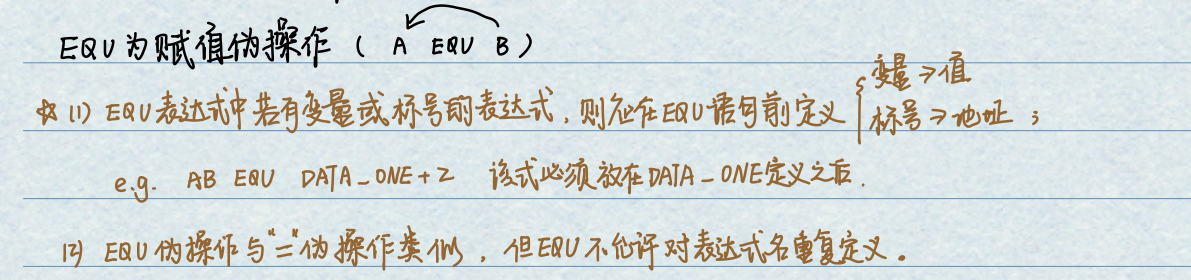 EQU为赋值伪操作 ( A EQU B )
☆ (1) EQU表达式中若有变量或标号的表达式，则应在EQU语句前定义 { 变量→值
标号→地址 ;
e.g. AB EQU DATA_ONE+2 该式必须放在DATA_ONE定义之后.
(2) EQU伪操作与"="伪操作类似，但EQU不允许对表达式名重复定义。